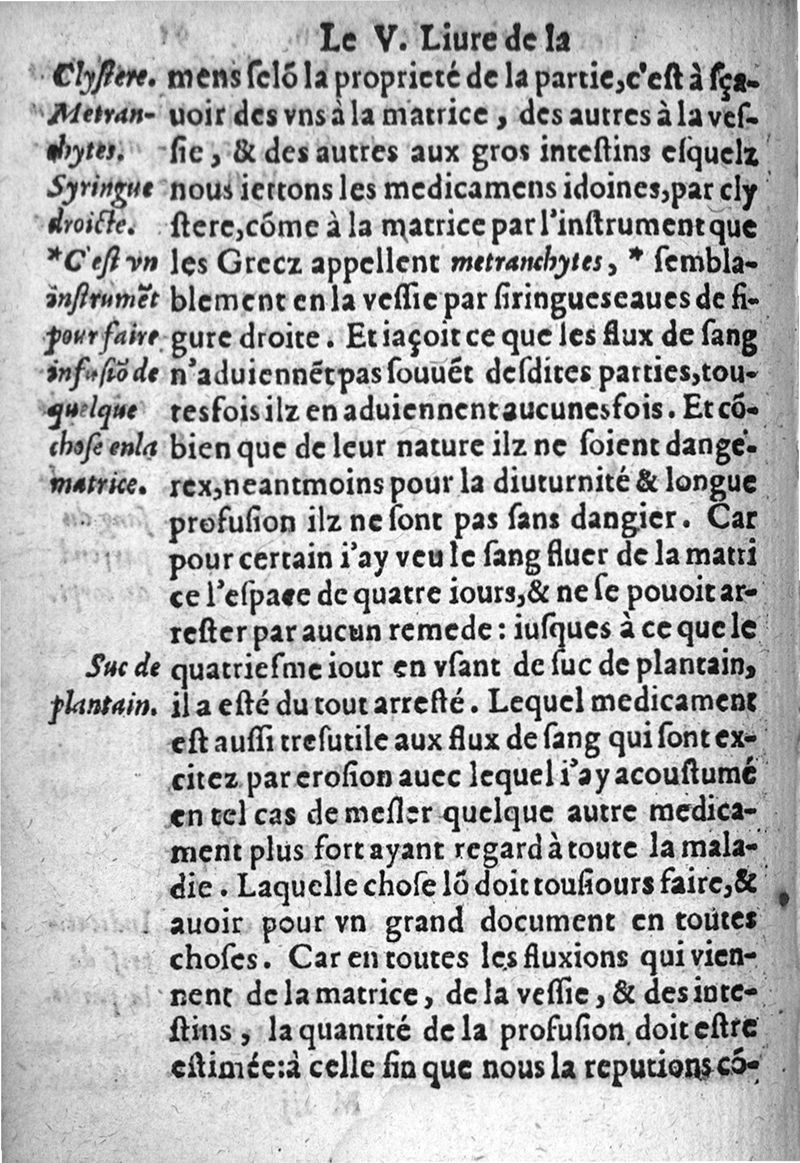 Le V. Liure de la
Clyſtere.
Metran-
chytes.
Syringue
droicte.
*C'eſt vn
inſtrumēt
pour faire
infuſiō de
quelque
choſe en la
matrice.
Suc de
plantain.
mens ſelō la proprieté de la partie, c'eſt à ſça-
uoir des vns à la matrice, des autres à la veſ-
ſie, & des autres aux gros inteſtins eſquelz
nous iettons les medicamens idoines, par cly
ſtere, cōme à la matrice par l'inſtrument que
les Grecz appellent metranchytes, * ſembla-
blement en la veſſie par ſiringues eaues de fi-
gure droite. Et iaçoit ce que les flux de ſang
n'aduiennēt pas ſouuēt deſdites parties, tou-
tesfois ilz en aduiennent aucunesfois. Et cō-
bien que de leur nature ilz ne ſoient dange-
rex, neantmoins pour la diuturnité & longue
profuſion ilz ne ſont pas ſans dangier. Car
pour certain i'ay veu le ſang fluer de la matri
ce l'eſpace de quatre iours, & ne ſe pouoit ar-
reſter par aucun remede: iuſques à ce que le
quatrieſme iour en vſant de ſuc de plantain,
il a eſté du tout arreſté. Lequel medicament
eſt auſſi treſutile aux flux de ſang qui ſont ex-
citez par eroſion auec lequel i'ay acouſtumé
en tel cas de meſler quelque autre medica-
ment plus fort ayant regard à toute la mala-
die. Laquelle choſe lō doit touſiours faire, &
auoir pour vn grand document en toutes
choſes. Car en toutes les fluxions qui vien-
nent de la matrice, de la veſſie, & des inte-
ſtins, la quantité de la profuſion doit eſtre
eſtimée: à celle fin que nous la reputions cō-